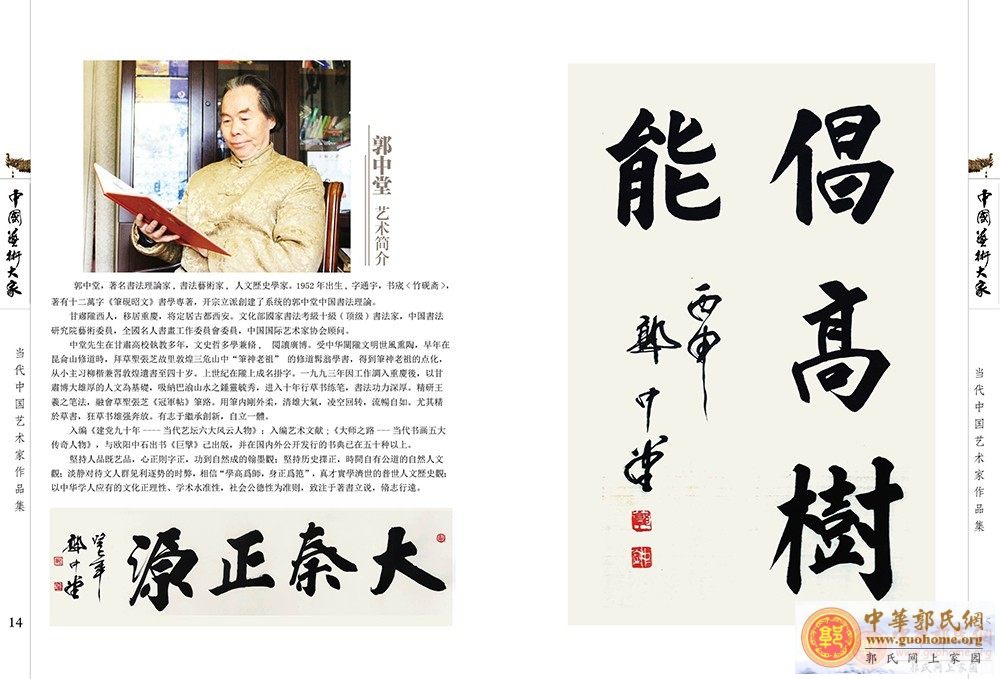 中國藝術大家
当代中国艺术家作品集
郭中堂 艺术简介
郭中堂，著名書法理論家，書法藝術家，人文歷史學家。1952年出生，字通宇，书宬〈竹砚斋〉，
著有十二萬字《筆硯昭文》書學專著，开宗立派創建了系统的郭中堂中国書法理論。
甘肅陇西人，移居重慶，将定居古都西安。文化部國家書法考級十級（顶级）書法家，中国書法
研究院藝術委員，全國名人書畫工作委員會委員，中国国际艺术家协会顾问。
中堂先生在甘肅高校執教多年，文史哲多學兼脩， 閲讀廣博。受中华關陇文明世風熏陶，早年在
昆侖山修道時，拜草聖張芝故里敦煌三危山中“筆神老祖” 的修道髯翁學書，得到筆神老祖的点化，
从小主习柳楷兼習敦煌遺書至四十岁。上世紀在隴上成名掛字。一九九三年因工作調入重慶後，以甘
肅博大雄厚的人文為基礎，吸納巴渝山水之鍾靈毓秀，进入十年行草书练笔，書法功力深厚。精研王
羲之笔法，融會草聖張芝《冠軍帖》筆路。用筆内剛外柔，清雄大氣，凌空回转，流暢自如。尤其精
於草書，狂草书雄强奔放。有志于繼承創新，自立一體。
入编《建党九十年----当代艺坛六大风云人物》；入编艺术文献；《大师之路---当代书画五大
传奇人物》，与欧阳中石出书《巨擘》已出版，并在国内外公开发行的书典已在五十种以上。
堅持人品既艺品，心正则字正，功到自然成的翰墨觀；坚持历史擇正，時間自有公道的自然人文
觀；淡静对待文人群见利逐勢的时弊，相信“學高爲師，身正爲范”，真才實學濟世的普世人文歷史觀；
以中华学人应有的文化正理性、学术水准性，社会公德性为准则，致注于著書立说，脩志行遠。
大秦正源
郭中堂
14
倡高樹能
丙申
郭中堂
中國藝術大家
当代中国艺术家作品集
中華郭氏網
www.guohome.org
郭氏网上家园